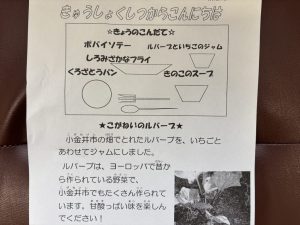 きゅうしょくしつからこんにちは
☆きょうのこんだて☆
ポパイソテー
ルバーブといちごのジャム
しろみざかなフライ
くろざとうパン
きのこのスープ
★こがねいのルバーブ★
小金井市の畑でとれたルバーブを、いちごと
あわせてジャムにしました。
ルバーブは、ヨーロッパで昔か
ら作られている野菜で、
小金井市でもたくさん作られて
います。甘酸っぱい味を楽しん
でください！